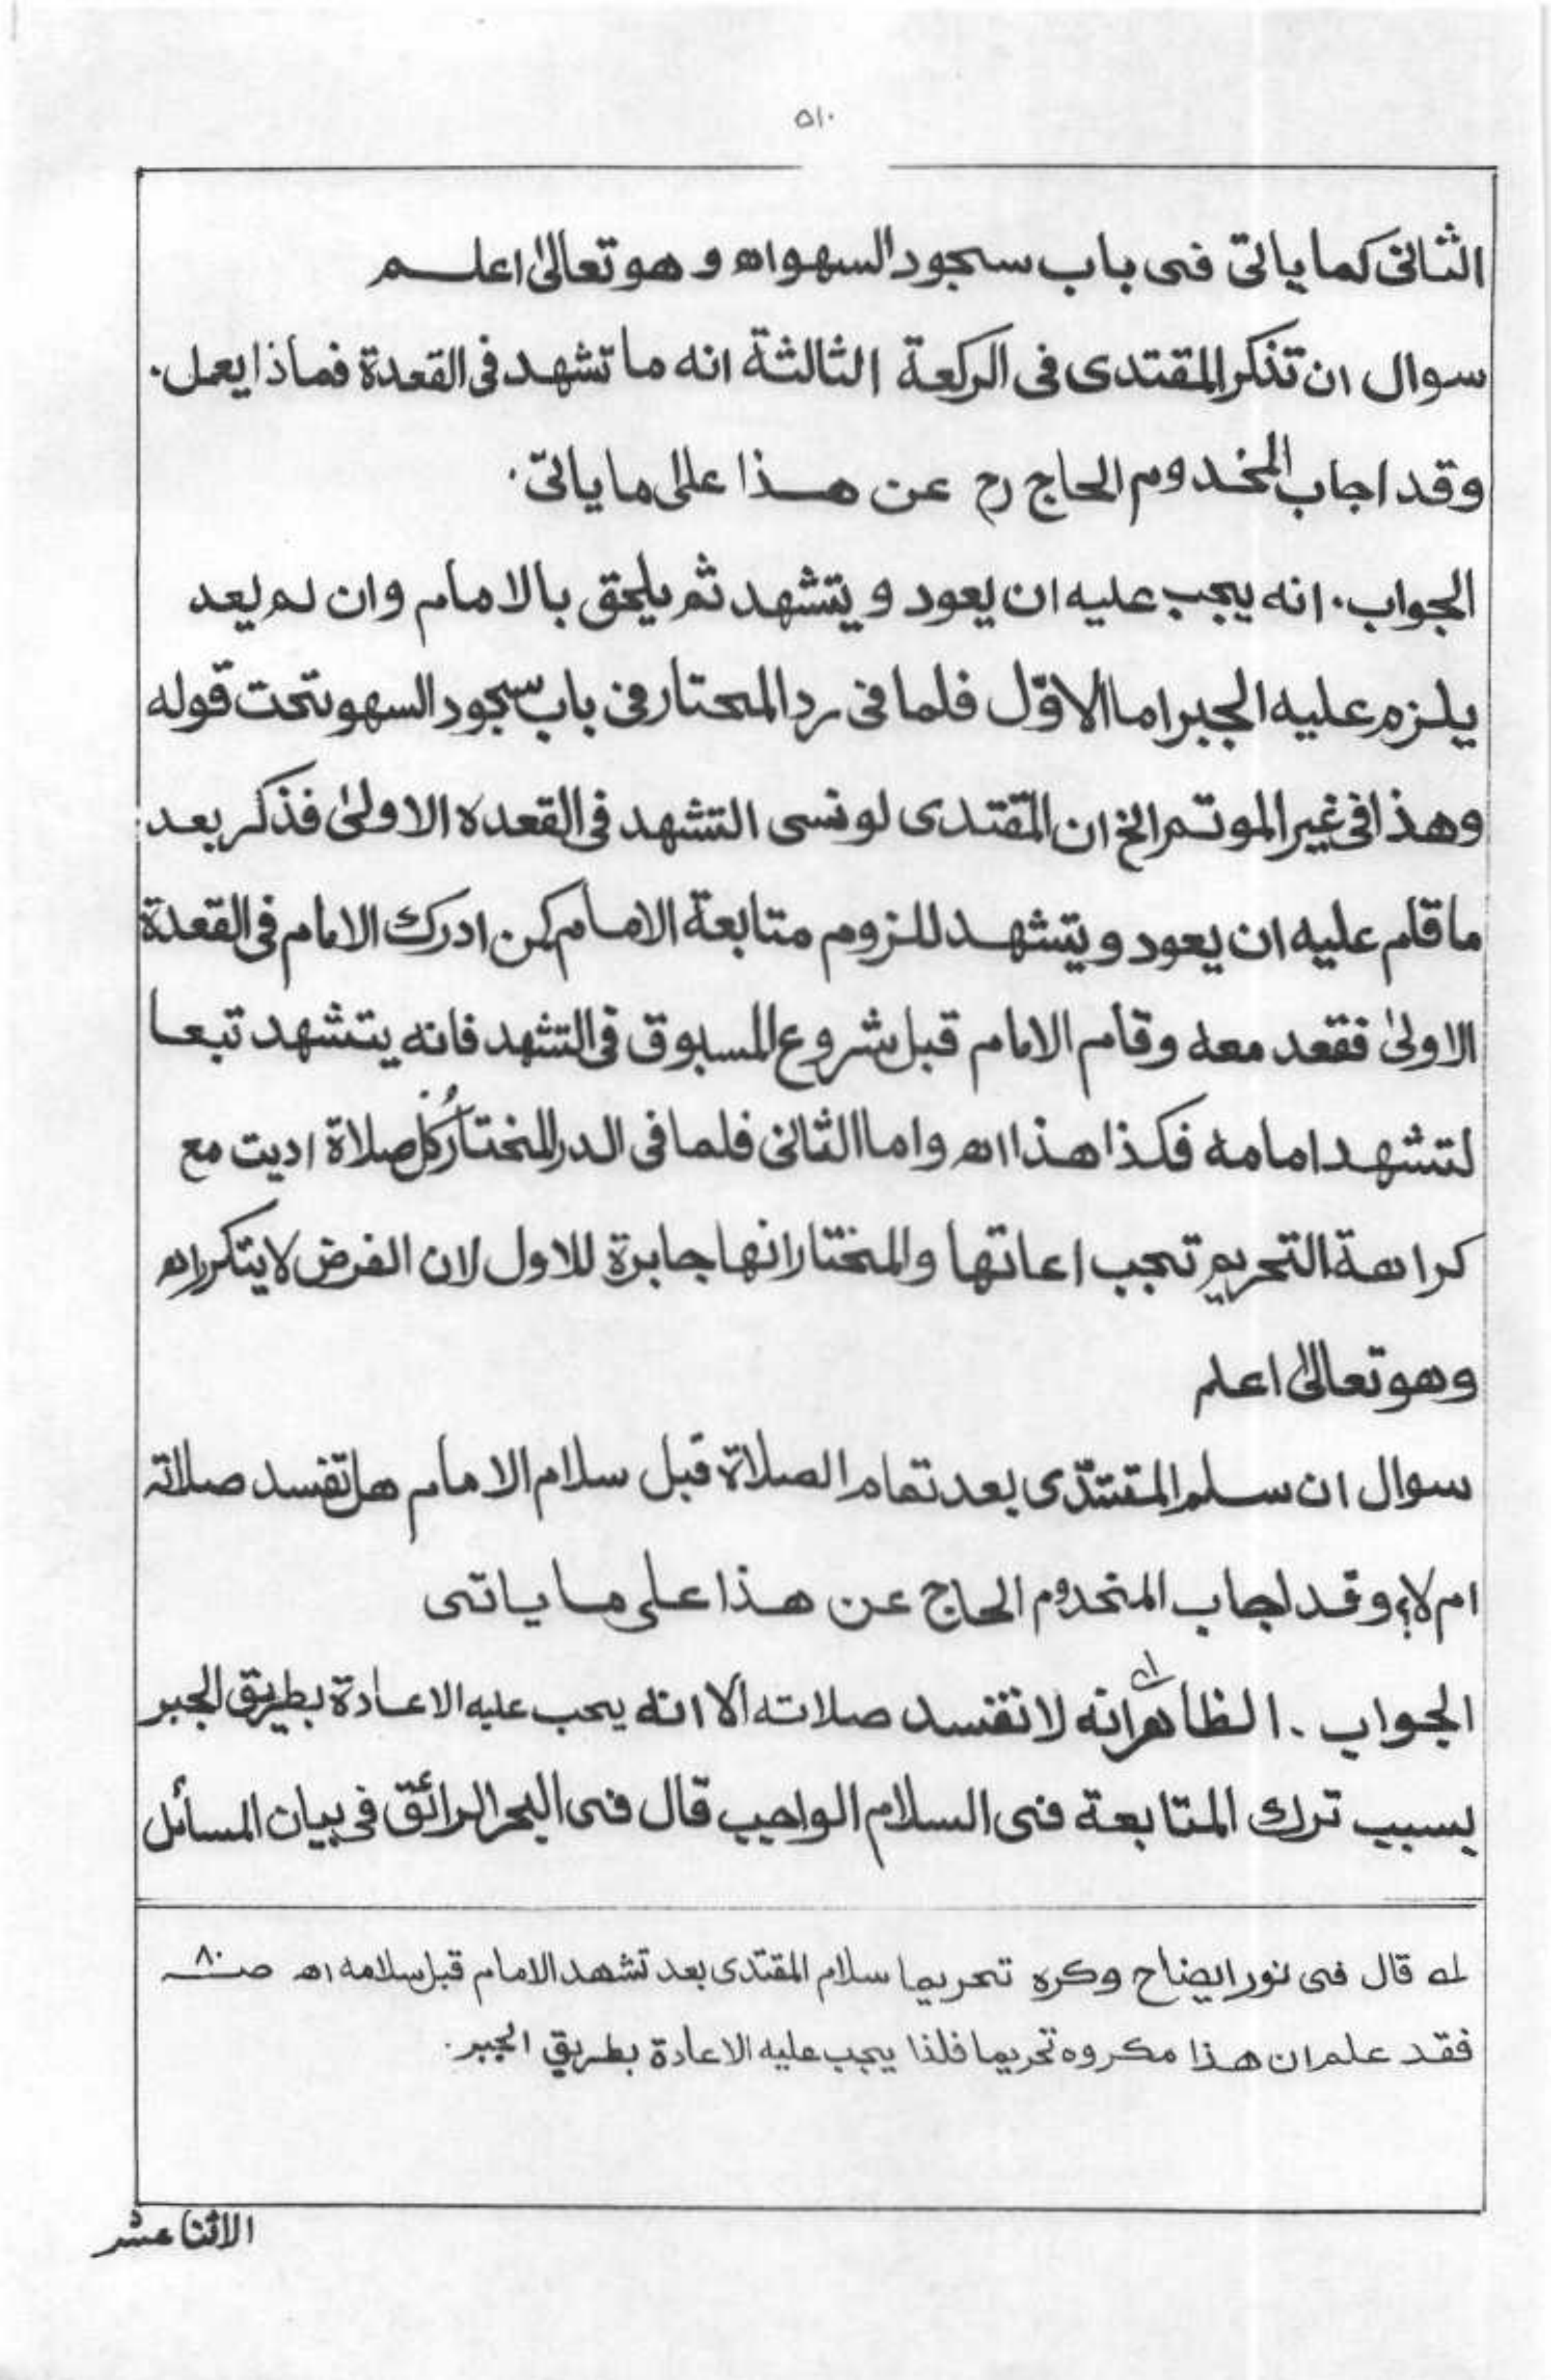 ٥١٠
الثانی كما یاتی فی باب سجود السهو اه و هو تعالیٰ اعلم
سوال ان تذكر المقتدی فی الركعة الثالثة انه ما تشهد فی القعدة فماذا یعمل.
وقد اجاب المخدوم الحاج رح عن هذا علی ما یاتی.
الجواب. انه یجب علیه ان یعود و یتشهد ثم یلحق بالامام وان لم یعد
یلزم علیه الجبر اما الاوّل فلما فی رد المحتار فی باب سجود السهو تحت قوله
وهذا فی غیر الموتم الخ ان المقتدی لو نسی التشهد فی القعده الاولیٰ فذكر بعد
ما قام علیه ان یعود و یتشهد للزوم متابعة الامام كمن ادرك الامام فی القعدة
الاولیٰ فقعد معه وقام الامام قبل شروع المسبوق فی التشهد فانه یتشهد تبعا
لتشهد امامه فكذا هذا اه واما الثانی فلما فی الدر المختار كُل صلاة ادیت مع
كراهة التحریم تجب اعاتها والمختار انها جابرة للاول لان الفرض لا یتكرر اه
وهو تعالیٰ اعلم
سوال ان سلم المقتدّی بعد تمام الصلاة قبل سلام الامام هل تفسد صلاته
ام لا؟ وقد اجاب المخدوم الحاج عن هذا علی ما یاتی
الجواب. الظاهر انه لا تفسد صلاته الا انه یجب علیه الاعادة بطریق الجبر
بسبب ترك المتابعة فی السلام الواجب قال فی البحر الرائق فی بیان المسائل
له قال فی نور ایضاح وكره تحریما سلام المقتدی بعد تشهد الامام قبل سلامه اه صـ٨٠
فقد علم ان هذا مكروه تحریما فلذا یجب علیه الاعادة بطریق الجبر.
الاثنا عشر